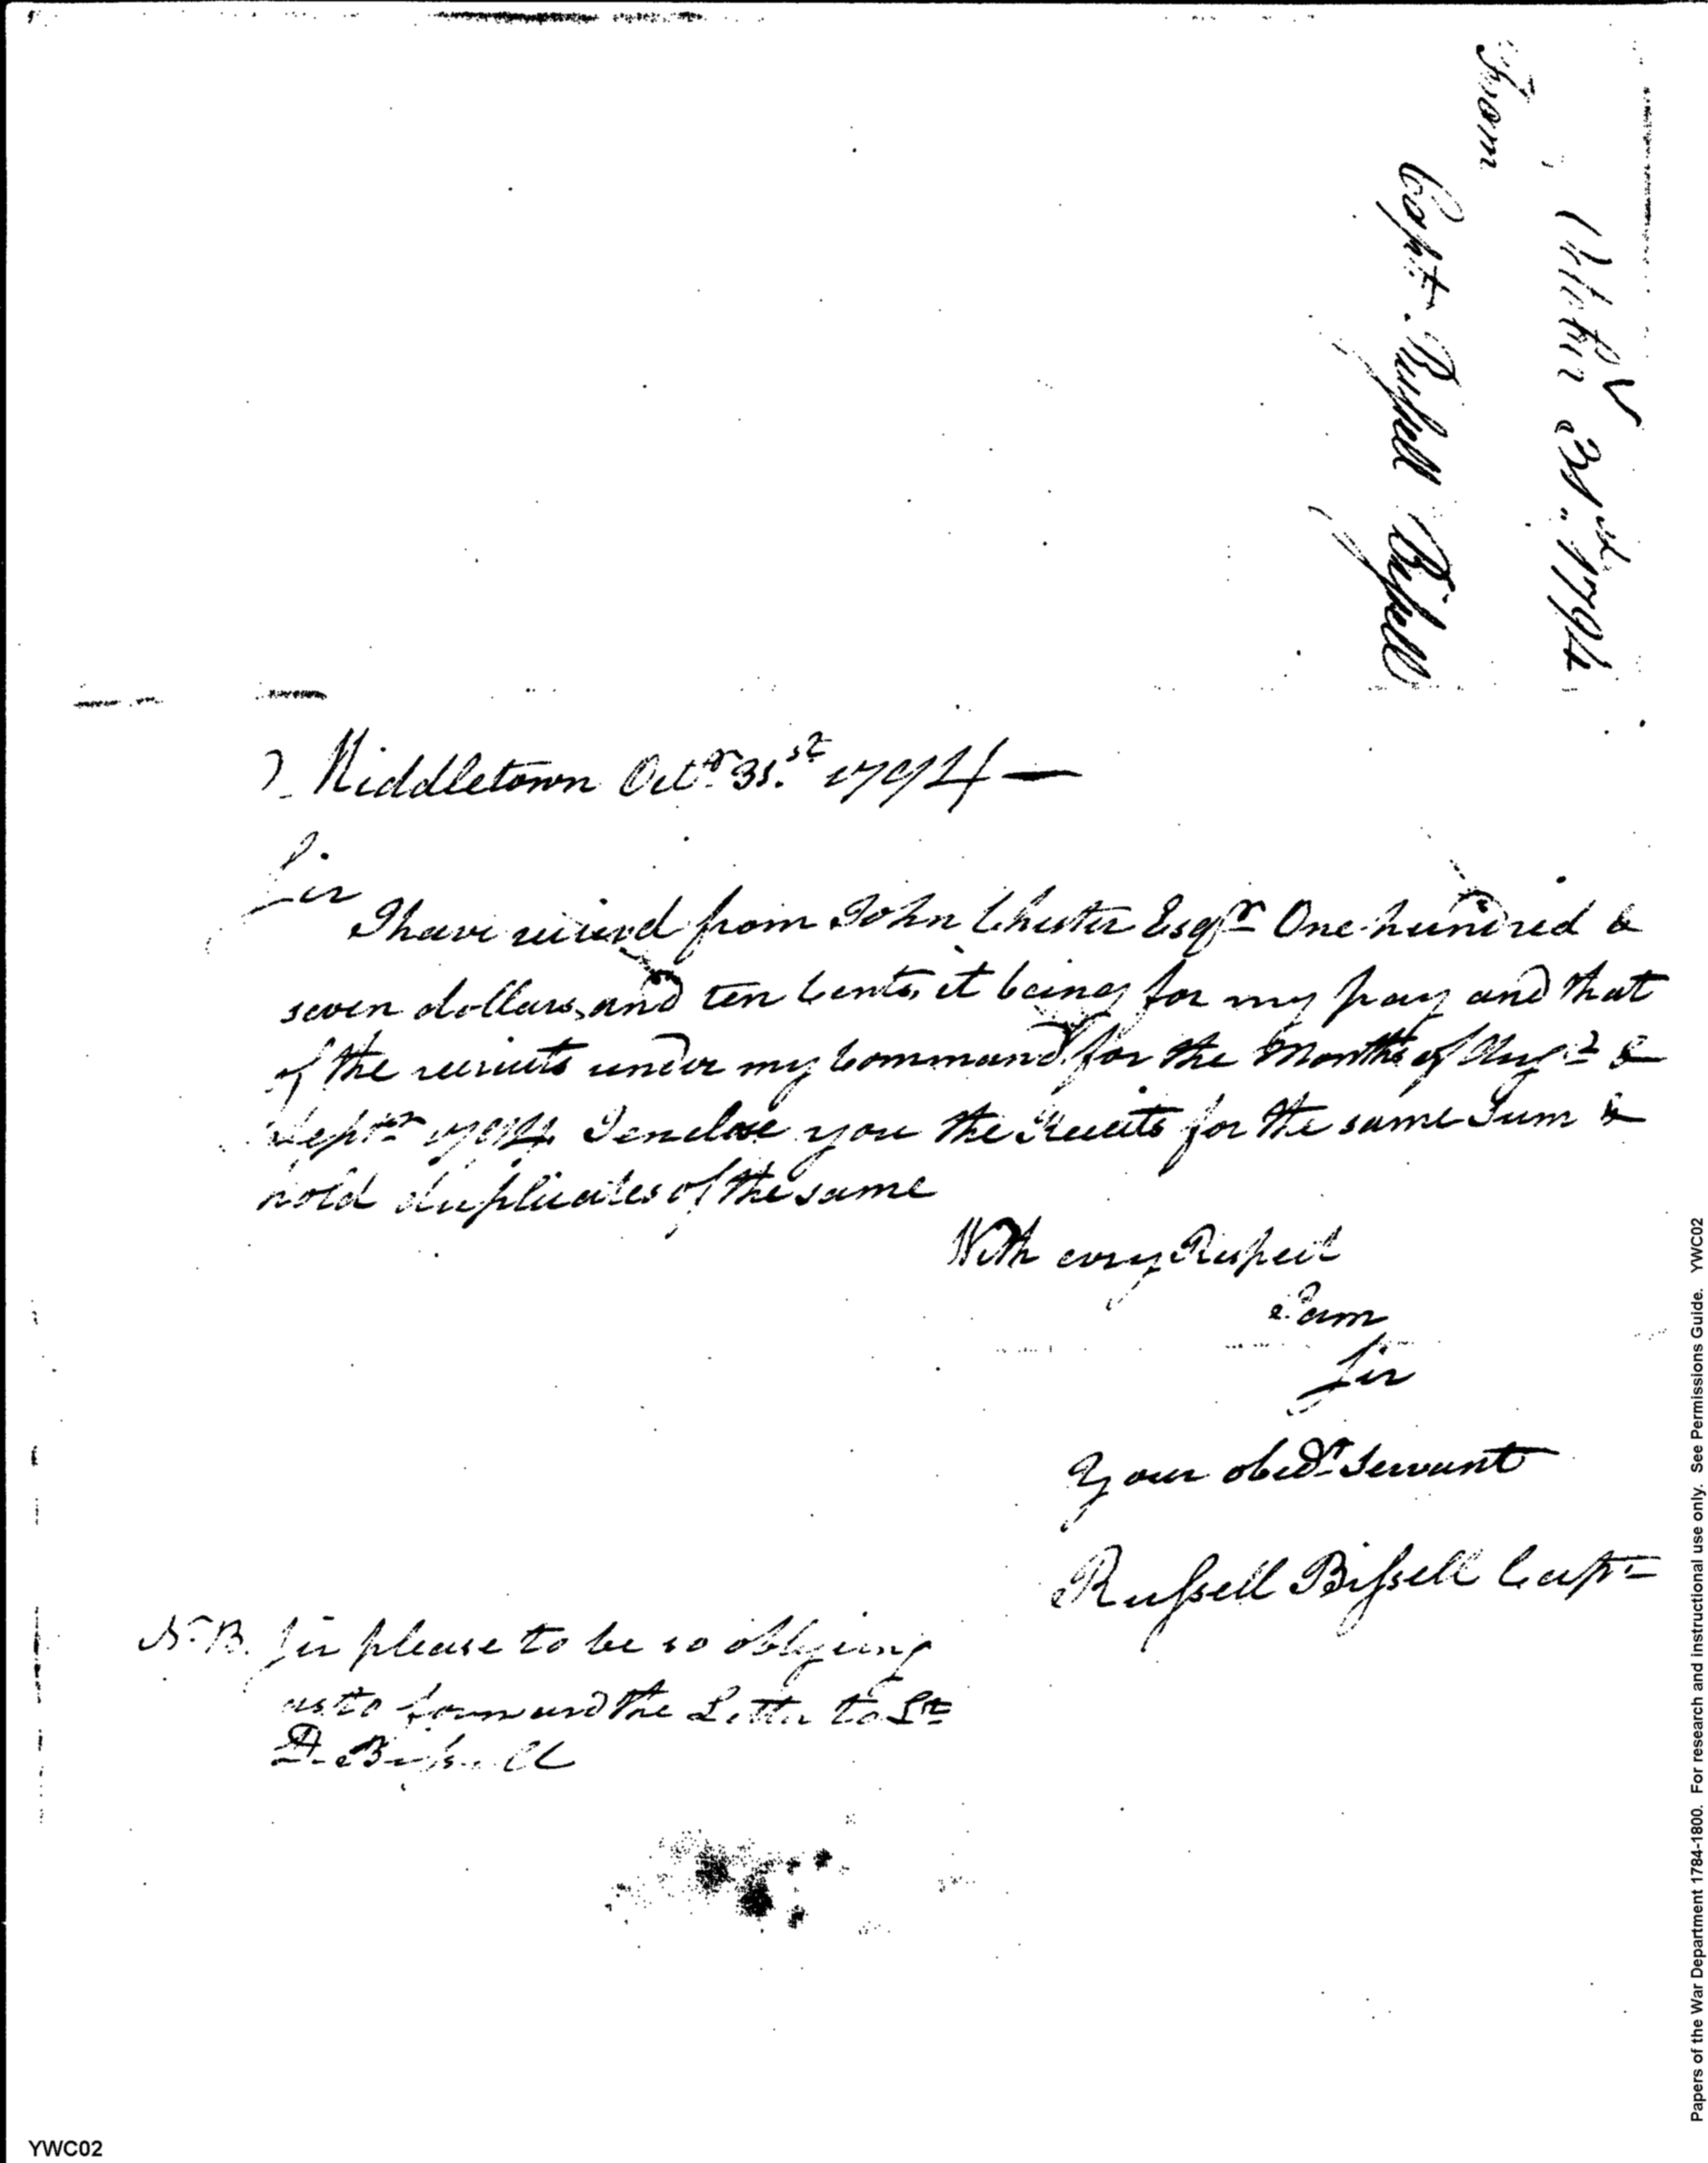 From
Capt. Russell Bissell
October 31st. 1794
Middletown Octr. 31.st 1794 —
Sir
I have recievd from John Chester Esqr One hundred &
seven dollars, and ten Cents, it being for my pay and that
of the recruits under my Command, for the Months of Augt &
Septr 1794 I enclose you the Receits for the same Sum &
hold duplicates of the same
With every Respect
I am
Sir
Your obedt Servant
Russell Bissell Capt
N.B. Sir please to be so obligeing
as to forward the Letter to Lt
D. Bissell
Papers of the War Department 1784-1800. For research and instructional use only. See Permissions Guide. YWC02
YWC02